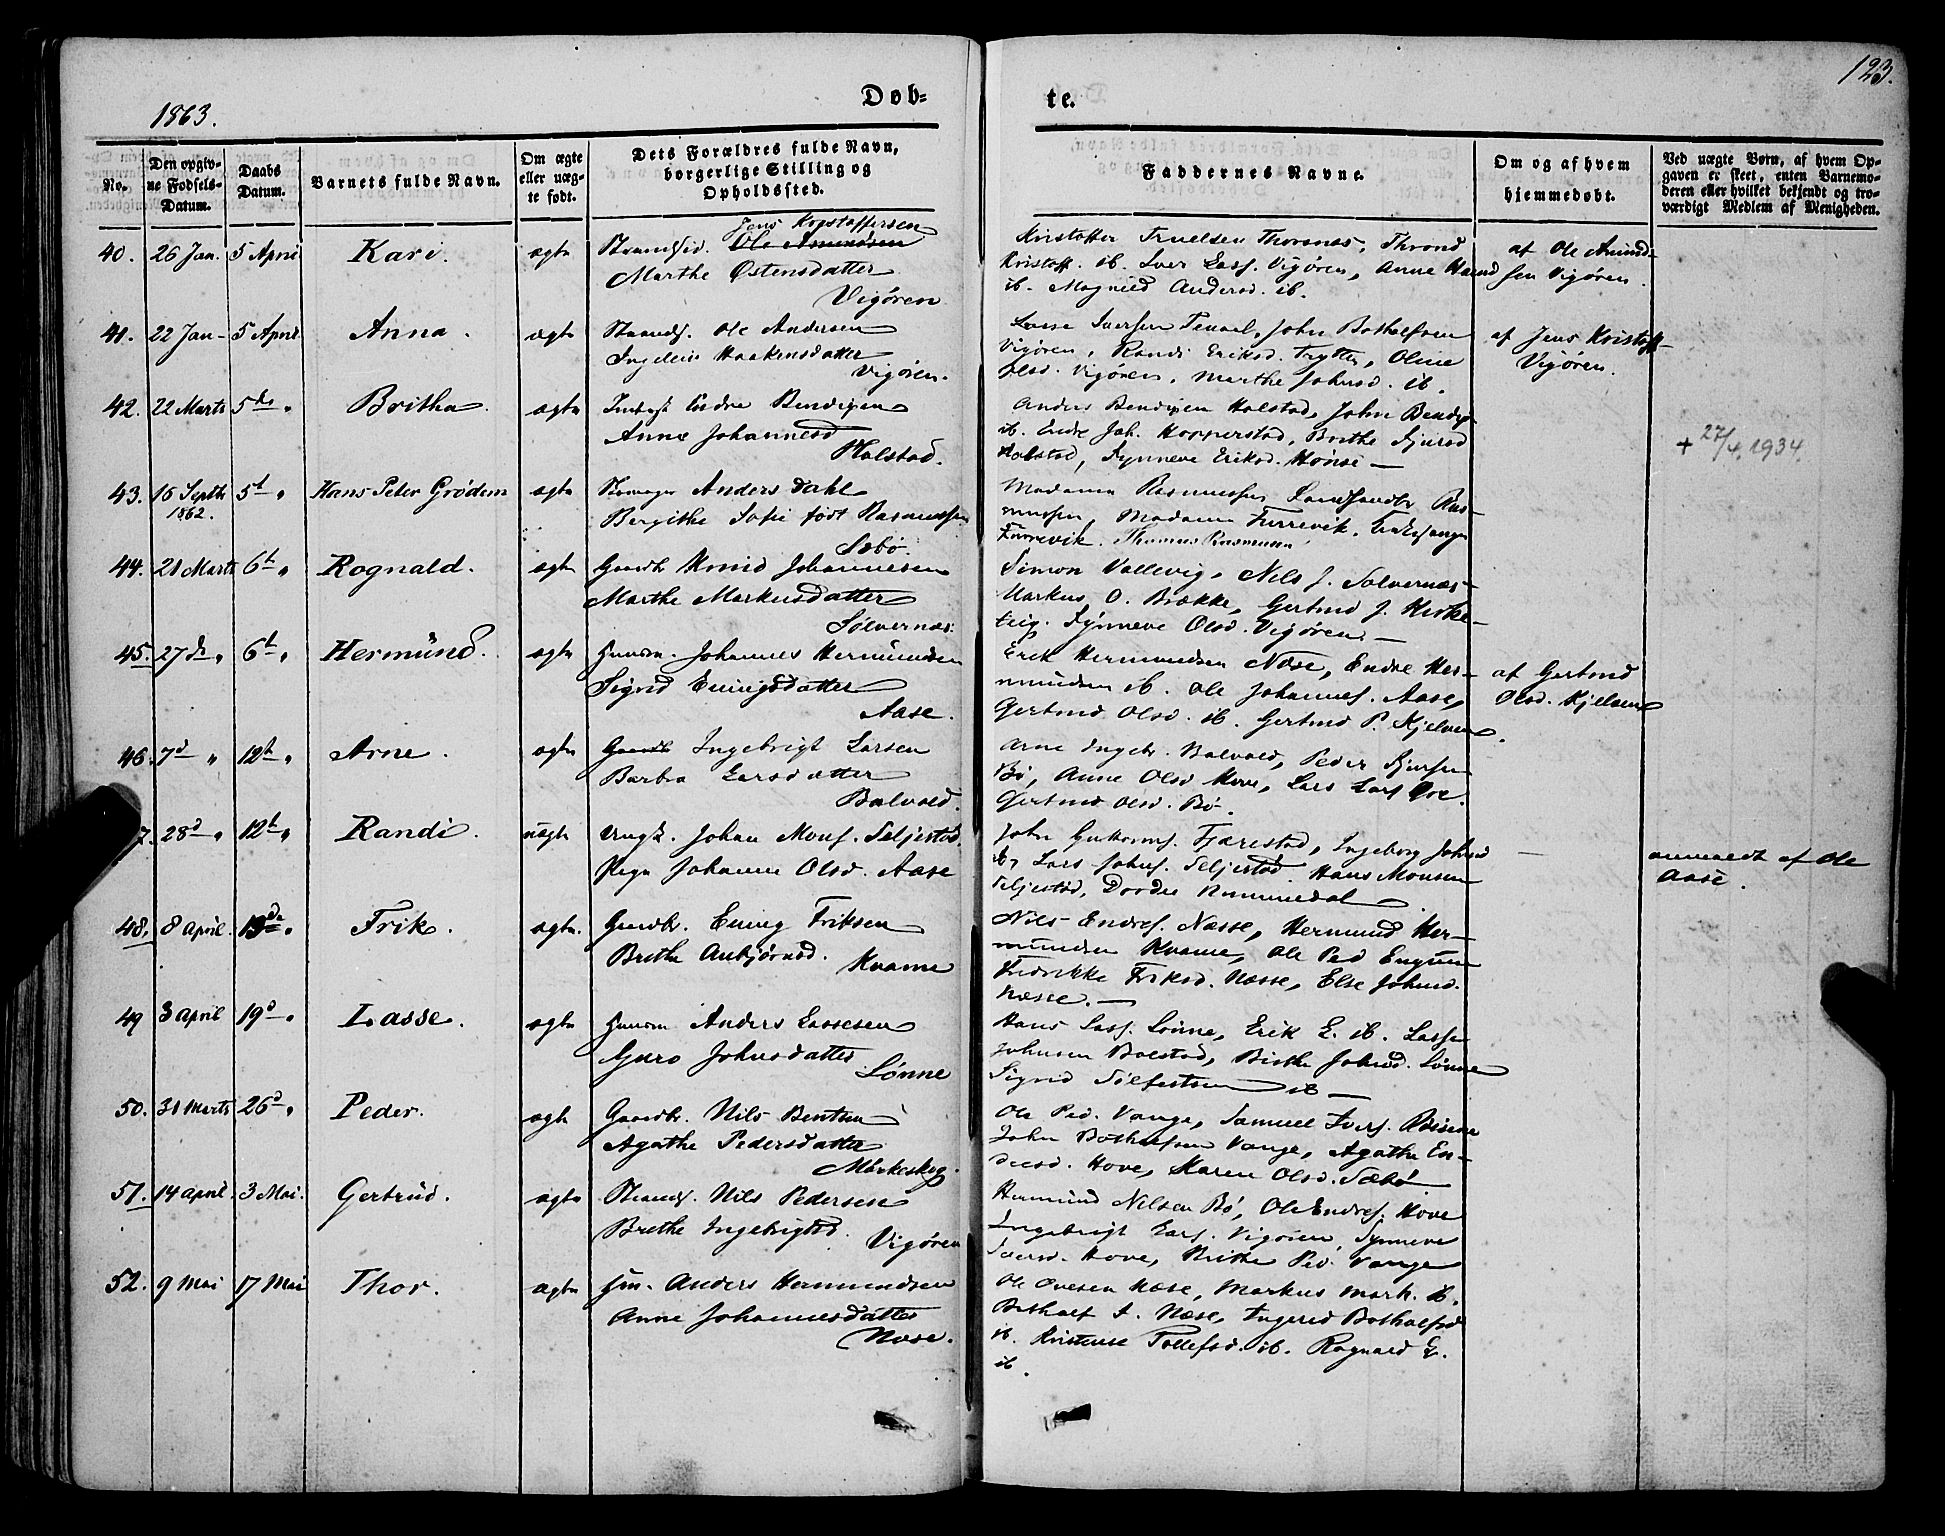 123.
1863.
Døb-
te.
No.
Den opgiv-
ne Fødsels-
Datum.
Daabs
Datum.
Barnets fulde Navn.
Om ægte
eller uæg-
te født.
Dets Forældres fulde Navn,
borgerlige Stilling og
Opholdssted.
Faddernes Navne.
Om og af hvem
hjemmedøbt.
Ved uægte Børn, af hvem Op-
gaven er skeet, enten Barnemo-
deren eller hvilket bekjendt og tro-
værdigt Medlem af Menigheden.
40. 26 Jan. 5 April Kari. ægte
Jens Kristoffersen
Strandsid. Ole Amundsen
Marthe Østensdatter
Vigøren
Kristoffer Truelsen Thorsnæs, Thrond
Kristoff. ib. Iver Lass. Vigøren, Anne
ib. Magnild Andersd. ib.
af Ole Amund-
sen Vigøren.
41. 22 Jan 5 April Anna. ægte
Strands. Ole Andersen
Ingeleiv Haakensdatter
Vigøren.
Lasse Iversen John Bothulfsen
Vigøren, Randi Eriksd. Oline
Olsd. Vigøren, Marthe Johnsd. ib.
af Jens Kristoff-
Vigøren.
42. 22 Marts 5 do " Britha. ægte
Endre Bendixen
Anna Johannesd
Halstad.
Anders Bendixen Halstad, John Bendix
ib. Endre Joh. Hopperstad, Brithe Sjursd
Halstad, Synneve Eriksd. Hønsi —
+ 27/4 1934.
43. 16 Septb 5t " Hans Peter Grødem ægte
1862.
Anders Dahl
Bergithe Sofie født Rasmussen
Sæbø.
Madame Rasmussen Ras-
mussen, Madame Furrevik,
Furrevik. Thomas Rasmussen
44. 21 Marts 6t " Rognald. ægte
Gaardbr Knud Johannesen
Marthe Markusdatter
Sølvernæs.
Simon Vallevig, Nils J. Sølvernæs-
Markus O. Brække, Gertrud J. Kirke-
teig. Synneve Olsd. Vigøren —
45. 27 do " 6t " Hermund. ægte
Huusm. Johannes Hermundsen
Sigrid Eningsdatter
Aase.
Erik Hermundsen Næse, Endre Her-
mundsen ib. Ole Johannes. Aase,
Gertrud Olsd. ib. Gertrud P. Kjelsen
af Gertrud
Olsd. Kjelsen
46. 7d " 12t " Arne. ægte
Gaardb Ingebrigt Larsen
Barba Larsdatter
Bolvold.
Arne Ingebr. Bolvold, Peder Sjursen
Bø, Anne Olsd Hove, Lars Lars
Gertrud Olsd. Bø.
7. 28d " 12t " Randi. uægte
Ungk. Johan Mons. Seljestad.
Pige Johanne Olsd. Aase
John Guttorms. Fjærestad, Ingeborg Johnsd
ib, Lars Johns. Seljestad Hans Monsen
Seljestad, Dordei
anmeldt af Ole
Aase.
48. 8 April. 19 de " Frik. ægte.
Gaardbr. Ening Friksen
Brithe Anbjørnsd.
Kvame
Nils Endres. Næsse, Hermund Her-
mundsen Kvame, Ole Ped
Fredrikke Friksd. Næsse, Else Johnsd.
Næsse. —
49 3 April 19d " Lasse. ægte
Huusm Anders Lassesen
Guro Johnsdatter
Lønne
Hans Lass. Lønne, Erik E. ib. Lasse
Johnsen Bolstad, Brithe Johnsd. Lønne
Sigrid ib —
50. 31 Marts 26d " Peder. ægte
Gaardbr. Nils Bentsen
Agathe Pedersdatter
Mørkeskog.
Ole Ped. Vange, Samuel Ivers.
John Bothulfsen Vange, Agathe En-
dresd. Hove, Karen Olsd. Sæbø
51. 14 April 3 Mai. Gertrud. ægte
Strands. Nils Pedersen
Brithe Ingebrigtsd.
Vigøren
Hermund Nilsen Bø, Ole Endres. Hove
Ingebrigt Lars. Vigøren Synneve
Iversd. Hove, Brithe Ped. Vange
52. 9 Mai 17 Mai Thor. ægte
Hm. Anders Hermundsen
Anne Johannesdatter
Næse.
Ole Ovesen Næse, Markus Mark. ib.
Bothulf Næse, Ingerid Bothulfsd
ib. Kristense Tollefsd. ib. Rognald E.
ib.